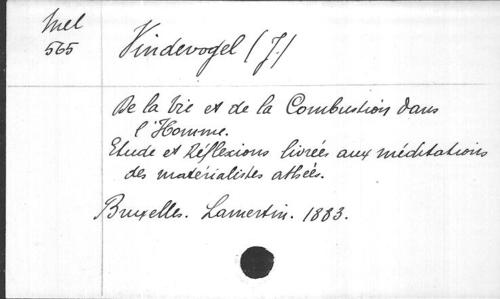 Mel
565
Vindevogel (J.)
De la Vie et de la Combustion dans
l'Homme.
Etude et Réflexions livrées aux méditations
des matérialistes athées.
Bruxelles. Lamertin. 1883.